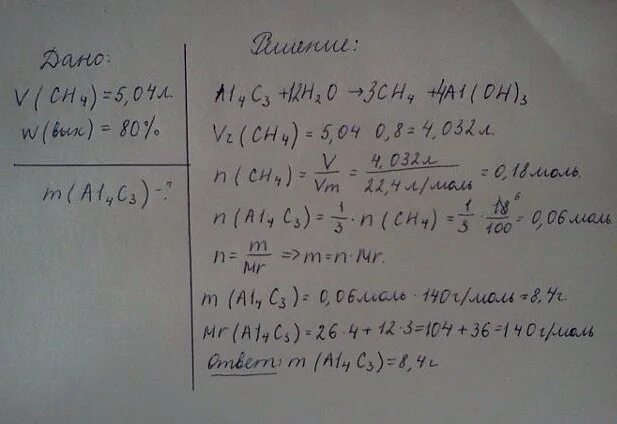 Дано:
V(CH₄)=5,04л.
w(вых)=80%
m(Al₄C₃)-?
Решение:
Al₄C₃+12H₂O→3CH₄+4Al(OH)₃
Vг(CH₄)=5,04·0,8=4,032л.
n(CH₄)=V/Vm=4,032л/22,4л/моль=0,18моль.
n(Al₄C₃)=1/3·n(CH₄)=1/3·18⁶/100=0,06моль
n=m/Mr=>m=n·Mr.
m(Al₄C₃)=0,06моль·140г/моль=8,4г
Mr(Al₄C₃)=26·4+12·3=104+36=140г/моль
Ответ: m(Al₄C₃)=8,4г